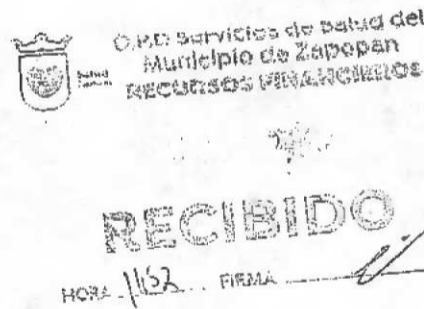 O.P.D Servicios de Salud del
Municipio de Zapopan
RECURSOS FINANCIEROS
Salud
RECIBIDO
HORA 1152 FIRMA